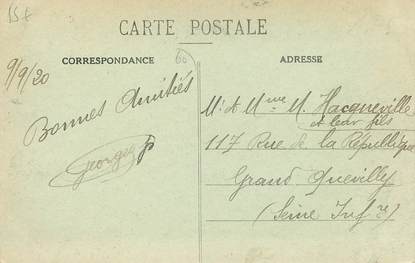 CARTE POSTALE
CORRESPONDANCE
ADRESSE
9/9/20
Bonnes Amitiés
Georges
Mr & Mme M. Hacqueville
et leur fils
117 Rue de la République
Grand Quevilly
(Seine Infre)